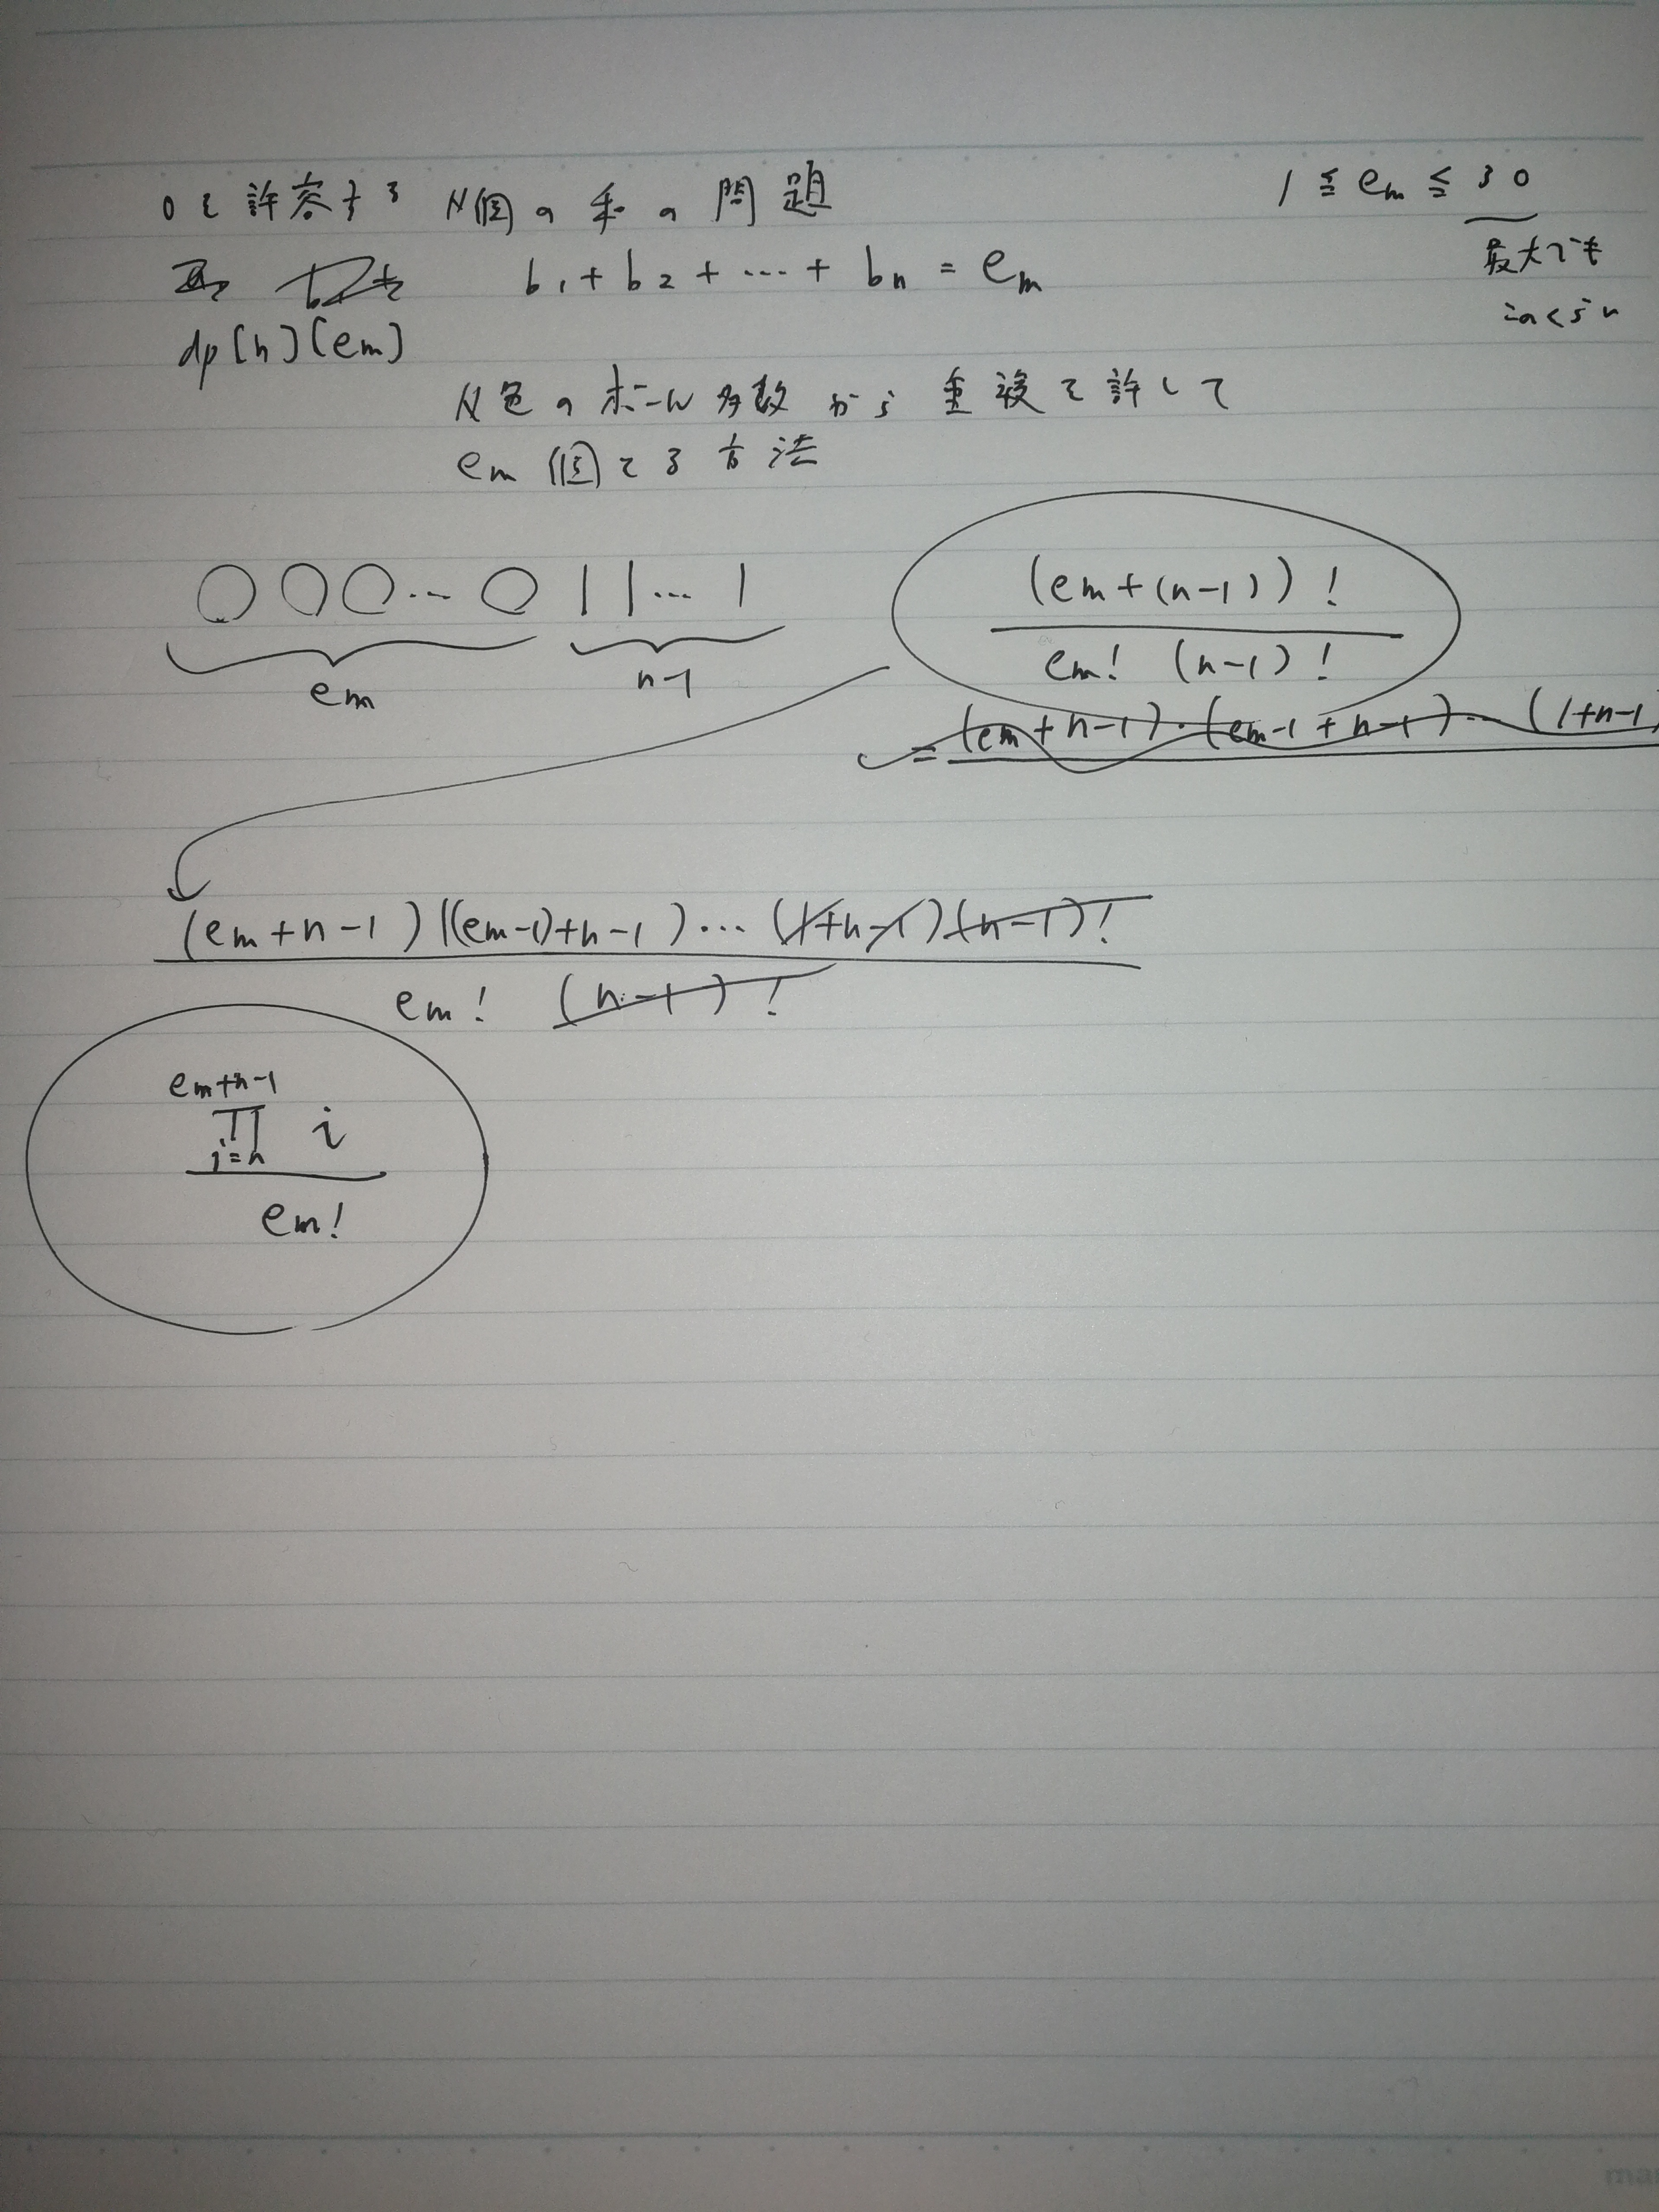 0を許容する N個の和の問題
1 ≦ em ≦ 30
最大でも
このくらい
b1 + b2 + … + bn = em
dp[n][em]
N色のボール多数から重複を許して
em個とる方法
○○○…○||…|
em
n-1
(em+(n-1))!
em! (n-1)!
= (em+n-1)・(em-1+n-1)…(1+n-1)
(em+n-1)((em-1)+n-1)…(1+n-1)(n-1)!
em! (n-1)!
em+n-1
∏ i
i=n
em!